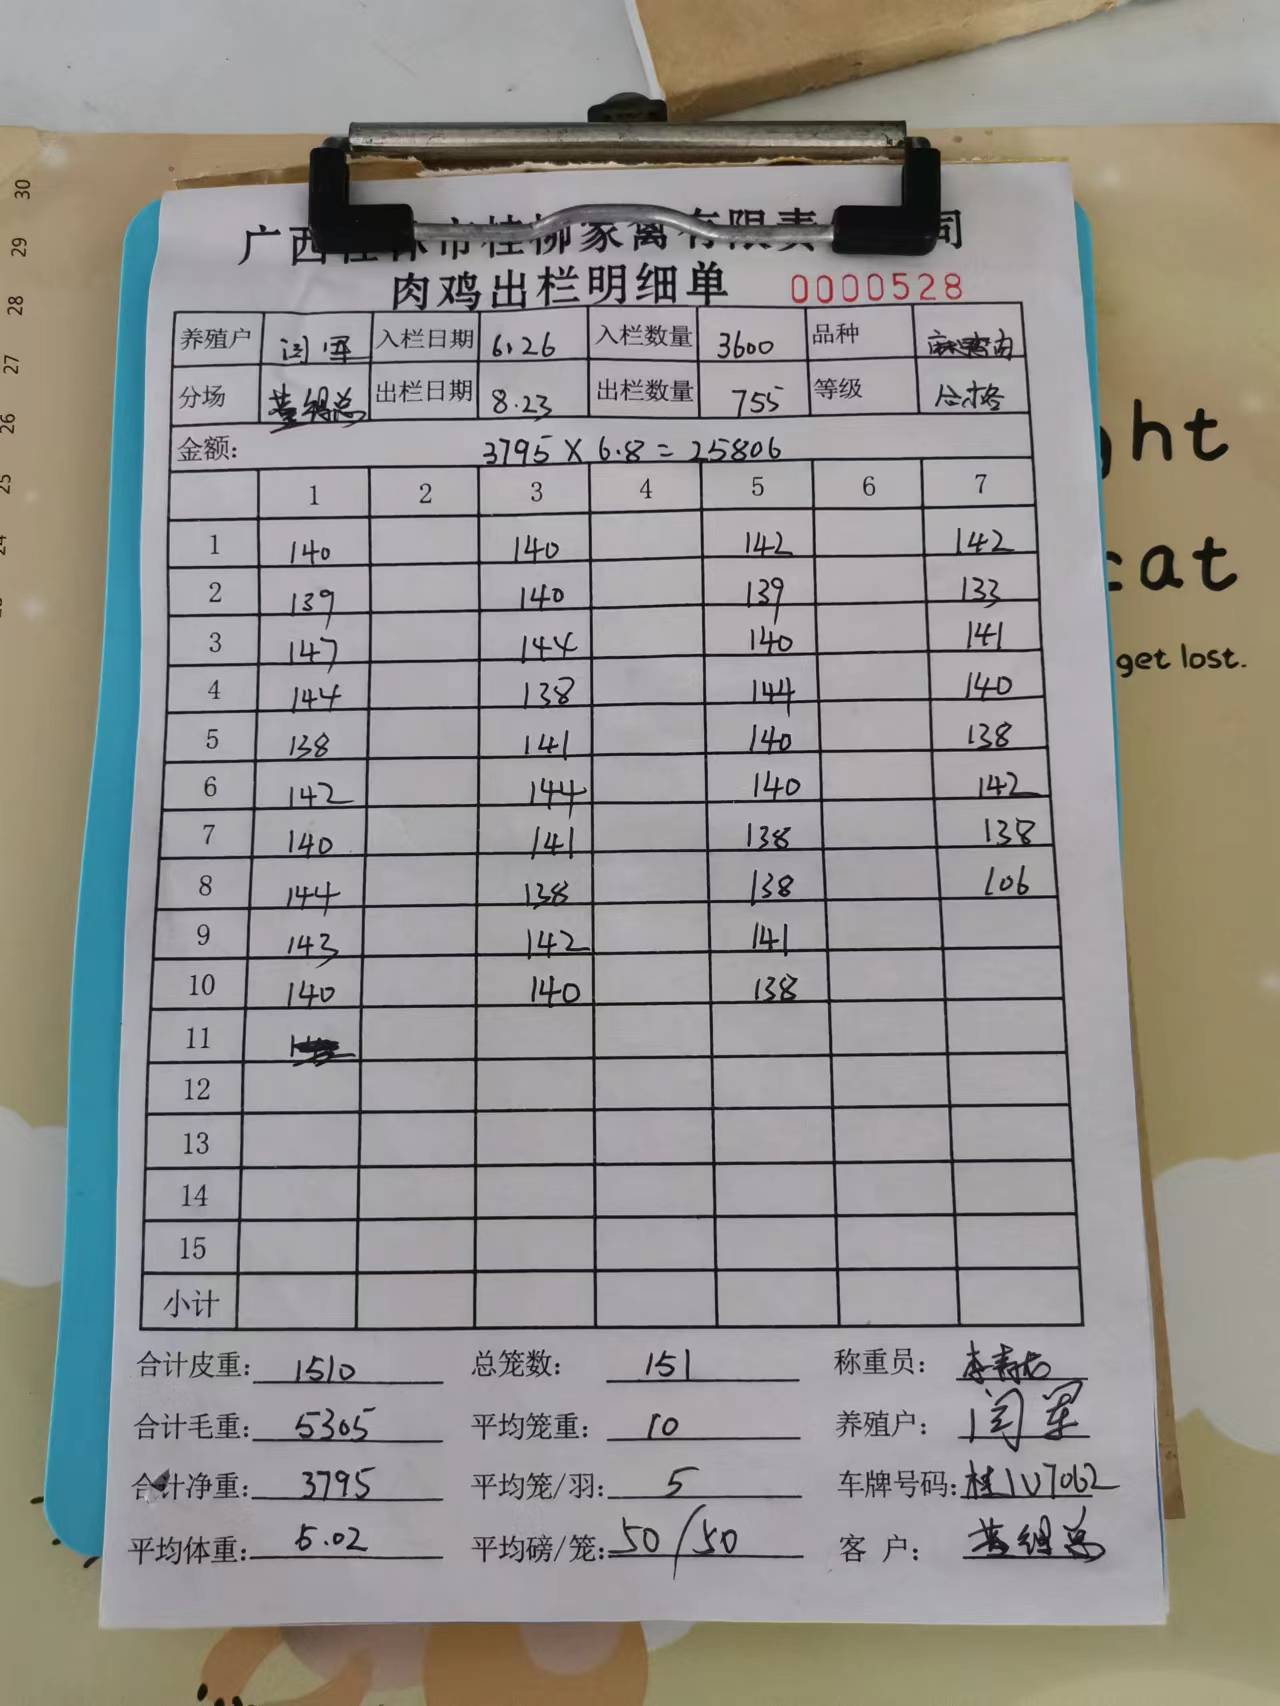 30
29
28
27
26
25
24
广西桂林市桂柳家禽有限责 司
肉鸡出栏明细单 0000528
养殖户 闫军 入栏日期 6.26 入栏数量 3600 品种
分场 出栏日期 8.23 出栏数量 755 等级 合格
金额: 3795 × 6.8 = 25806
1 2 3 4 5 6 7
1 140 140 142 142
2 139 140 139 133
3 147 144 140 141
4 144 138 144 140
5 138 141 140 138
6 142 144 140 142
7 140 141 138 138
8 144 138 138 106
9 143 142 141
10 140 140 138
11
12
13
14
15
小计
合计皮重: 1510 总笼数: 151 称重员:
合计毛重: 5305 平均笼重: 10 养殖户: 闫军
合计净重: 3795 平均笼/羽: 5 车牌号码: 桂1U7062
平均体重: 5.02 平均磅/笼: 50/50 客 户:
ht
cat
get lost.